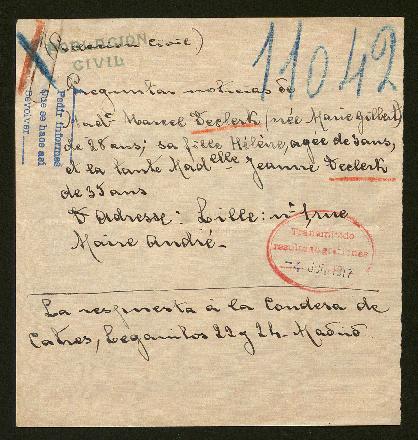 (Poblacion Civil)
POBLACIÓN
CIVIL
11042
Pedir informes
que se hace así
Devolver
Preguntar noticias de
Mad^e Marcel Declerk (née Marie Gilbert)
de 28 ans; sa fille Hélène, agée de 5 ans,
et la tante Mad^elle Jeanne Declerk
de 35 ans
Adresse: Lille: nº 1, rue
Maire André.
Transmitido
1917
La respuesta á la Condesa de
Catres, Leganitos 22 y 24. Madrid.